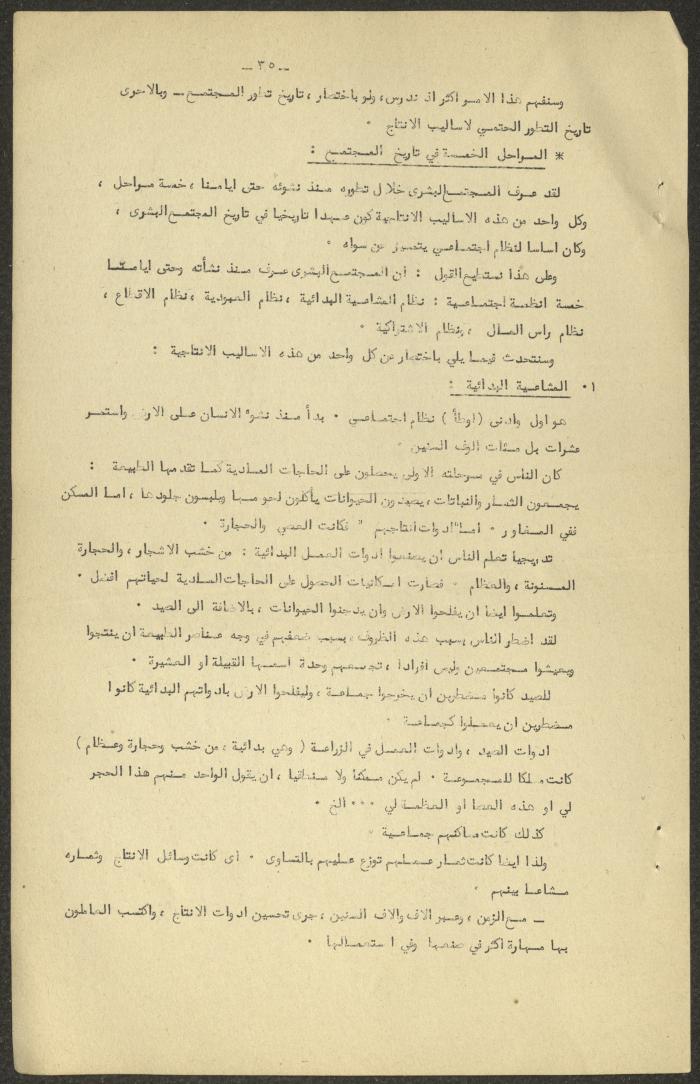 ـ ٣٥ ـ
وسنفهم هذا الامر اكثر اذ ندرس، ولو باختصار ، تاريخ تطور المجتمع ـ وبالاحرى
تاريخ التطور الحتمي لاساليب الانتاج ٠
* المراحل الخمسة في تاريخ المجتمع :
لقد عرف المجتمع البشرى خلال تطوره منذ نشوئه حتى ايامنا ، خمسة مراحل ،
وكل واحد من هذه الاساليب الانتاجية كون عهدا تاريخيا في تاريخ المجتمع البشرى ،
وكان اساسا لنظام اجتماعي يتميز عن سواه ٠
وعلى هذا نستطيع القول : ان المجتمع البشرى عرف منذ نشأته وحتى ايامنا
خمسة انظمة اجتماعية : نظام المشاعية البدائية ، نظام العبودية ، نظام الاقطاع ،
نظام راس المال ، ونظام الاشتراكية ٠
وسنتحدث فيما يلي باختصار عن كل واحد من هذه الاساليب الانتاجية :
١٠ المشاعية البدائية :
هو اول وادنى (اوطأ) نظام اجتماعي ٠ بدأ منذ نشوء الانسان على الارض واستمر
عشرات بل مئات الوف السنين ٠
كان الناس في مرحلته الاولى يحصلون على الحاجات المادية كما تقدمها الطبيعة :
يجمعون الثمار والنباتات ، يصيدون الحيوانات يأكلون لحومها ويلبسون جلودها ، اما المسكن
ففي المغاور ٠ اما "ادوات انتاجهم " فكانت العصي والحجارة ٠
تدريجيا تعلم الناس ان يصنعوا ادوات العمل البدائية : من خشب الاشجار ، والحجارة
المسنونة ، والعظام ٠ فصارت امكانيات الحصول على الحاجات المادية لحياتهم افضل ٠
وتعلموا ايضا ان يفلحوا الارض وان يدجنوا الحيوانات ، بالاضافة الى الصيد ٠
لقد اضطر الناس بسبب هذه الظروف ، بسبب ضعفهم في وجه عناصر الطبيعة ان ينتجوا
ويعيشوا مجتمعين وليس افرادا ، تجمعهم وحدة اسمها القبيلة او العشيرة ٠
للصيد كانوا مضطرين ان يخرجوا جماعة ، وليفلحوا الارض بادواتهم البدائية كانوا
مضطرين ان يعملوا كجماعة ٠
ادوات الصيد ، وادوات العمل في الزراعة ( وهي بدائية ، من خشب وحجارة وعظام )
كانت ملكا للمجموعة ٠ لم يكن ممكنا ولا منطقيا ، ان يقول الواحد منهم هذا الحجر
لي او هذه العصا او العظمة لي ٠٠٠ الخ ٠
كذلك كانت ملكيتهم جماعية ٠
ولذا ايضا كانت ثمار عملهم توزع عليهم بالتساوى ٠ اى كانت وسائل الانتاج وثماره
مشاعا بينهم ٠
ـ مع الزمن ، وعبر الاف والاف السنين ، جرى تحسين ادوات الانتاج ، واكتسب العاملون
بها مهارة اكثر في صنعها وفي استعمالها ٠